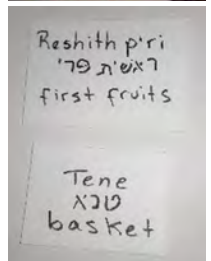 Reshith p'ri
ראשית פרי
first fruits
Tene
טנא
basket